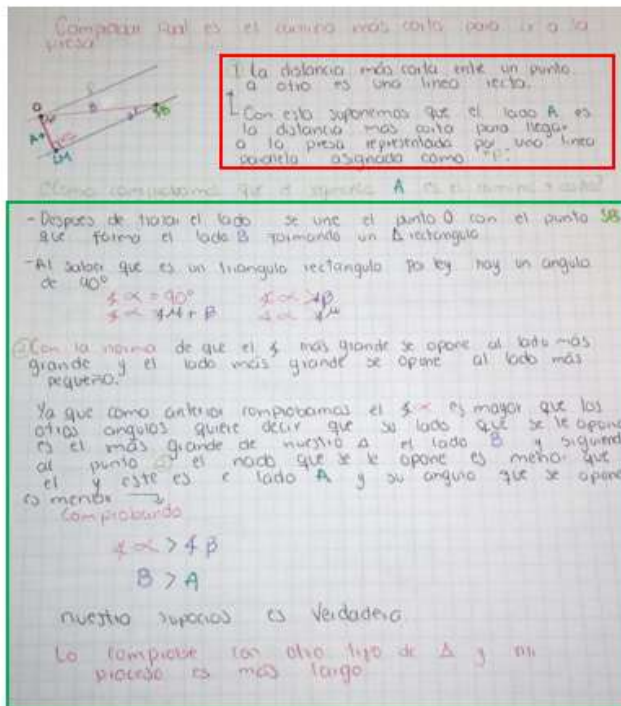 Comprobar cual es el camino más corto para ir a la
presa
C
O
B
SB
A
LM
1 La distancia más corta ente un punto
a otro es una linea recta.
Con esto suponemos que el lado A es
la distancia mas corta para llegar
a la presa representada por una linea
paralela asignada como "P".
¿Como comprobamos que el A es el camino + corto?
- Despues de trazar el lado se une el punto O con el punto SB
que forma el lado B formando un Δ rectangulo
- Al saber que es un triangulo rectangulo por ley hay un angulo
de 90°
∡ α = 90° ∡ α > β
∡ α ∡ μ + β ∡ α
② Con la norma de que el ∡ mas grande se opone al lado más
grande y el lado más grande se opone al lado más
pequeño.
Ya que como anterior comprobamos el ∡ α es mayor que los
otros angulos quiere decir que su lado que se le opone
es el más grande de nuestro Δ el lado B y siguiendo
al punto ② el nado que se le opone es menor que
el y este es e lado A y su angulo que se opone
es menor →
Comprobando
∡ α > ∡ β
B > A
nuestro es Verdadero
Lo comprobe con otro tipo de Δ y mi
proceso es más largo